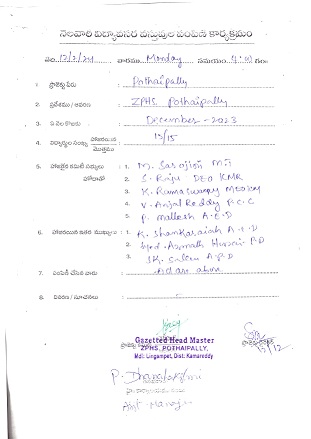 నెలవారి విద్యావసర వస్తువుల పంపిణి కార్యక్రమం
నెం. 12/2/24 వారము Monday సమయం 4:00 గం॥
1. ప్రాజెక్టు పేరు : Pothaipally
2. ప్రదేశము / ఆవరణ : ZPHS Pothaipally
3. ఏ నెల కొరకు : December - 2023
4. విద్యార్థుల సంఖ్య హాజరైనది/మొత్తము : 15/15
5. హాజరైన కమిటీ సభ్యులు : 1. M. Sarojini
హోదాతో 2. S. Raju DEO KMR
3. K. Ramaswamy MEO
4. V. Anjal Reddy P.C.C
5. P. Mallesh A.E.D
6. హాజరయిన ఇతర ముఖ్యులు : 1. K. Shankaraiah A.E.D
2. Md. Azmath Hussain P.D
3. SK. Saleem A.P.D
7. పంపిణీ చేసిన వారు : As above
8. వివరణ / సూచనలు :
Gazetted Head Master
ZPHS, POTHAIPALLY,
Mdl: Lingampet, Dist: Kamareddy
12/12
P. Dhanalakshmi
Asst. Manager